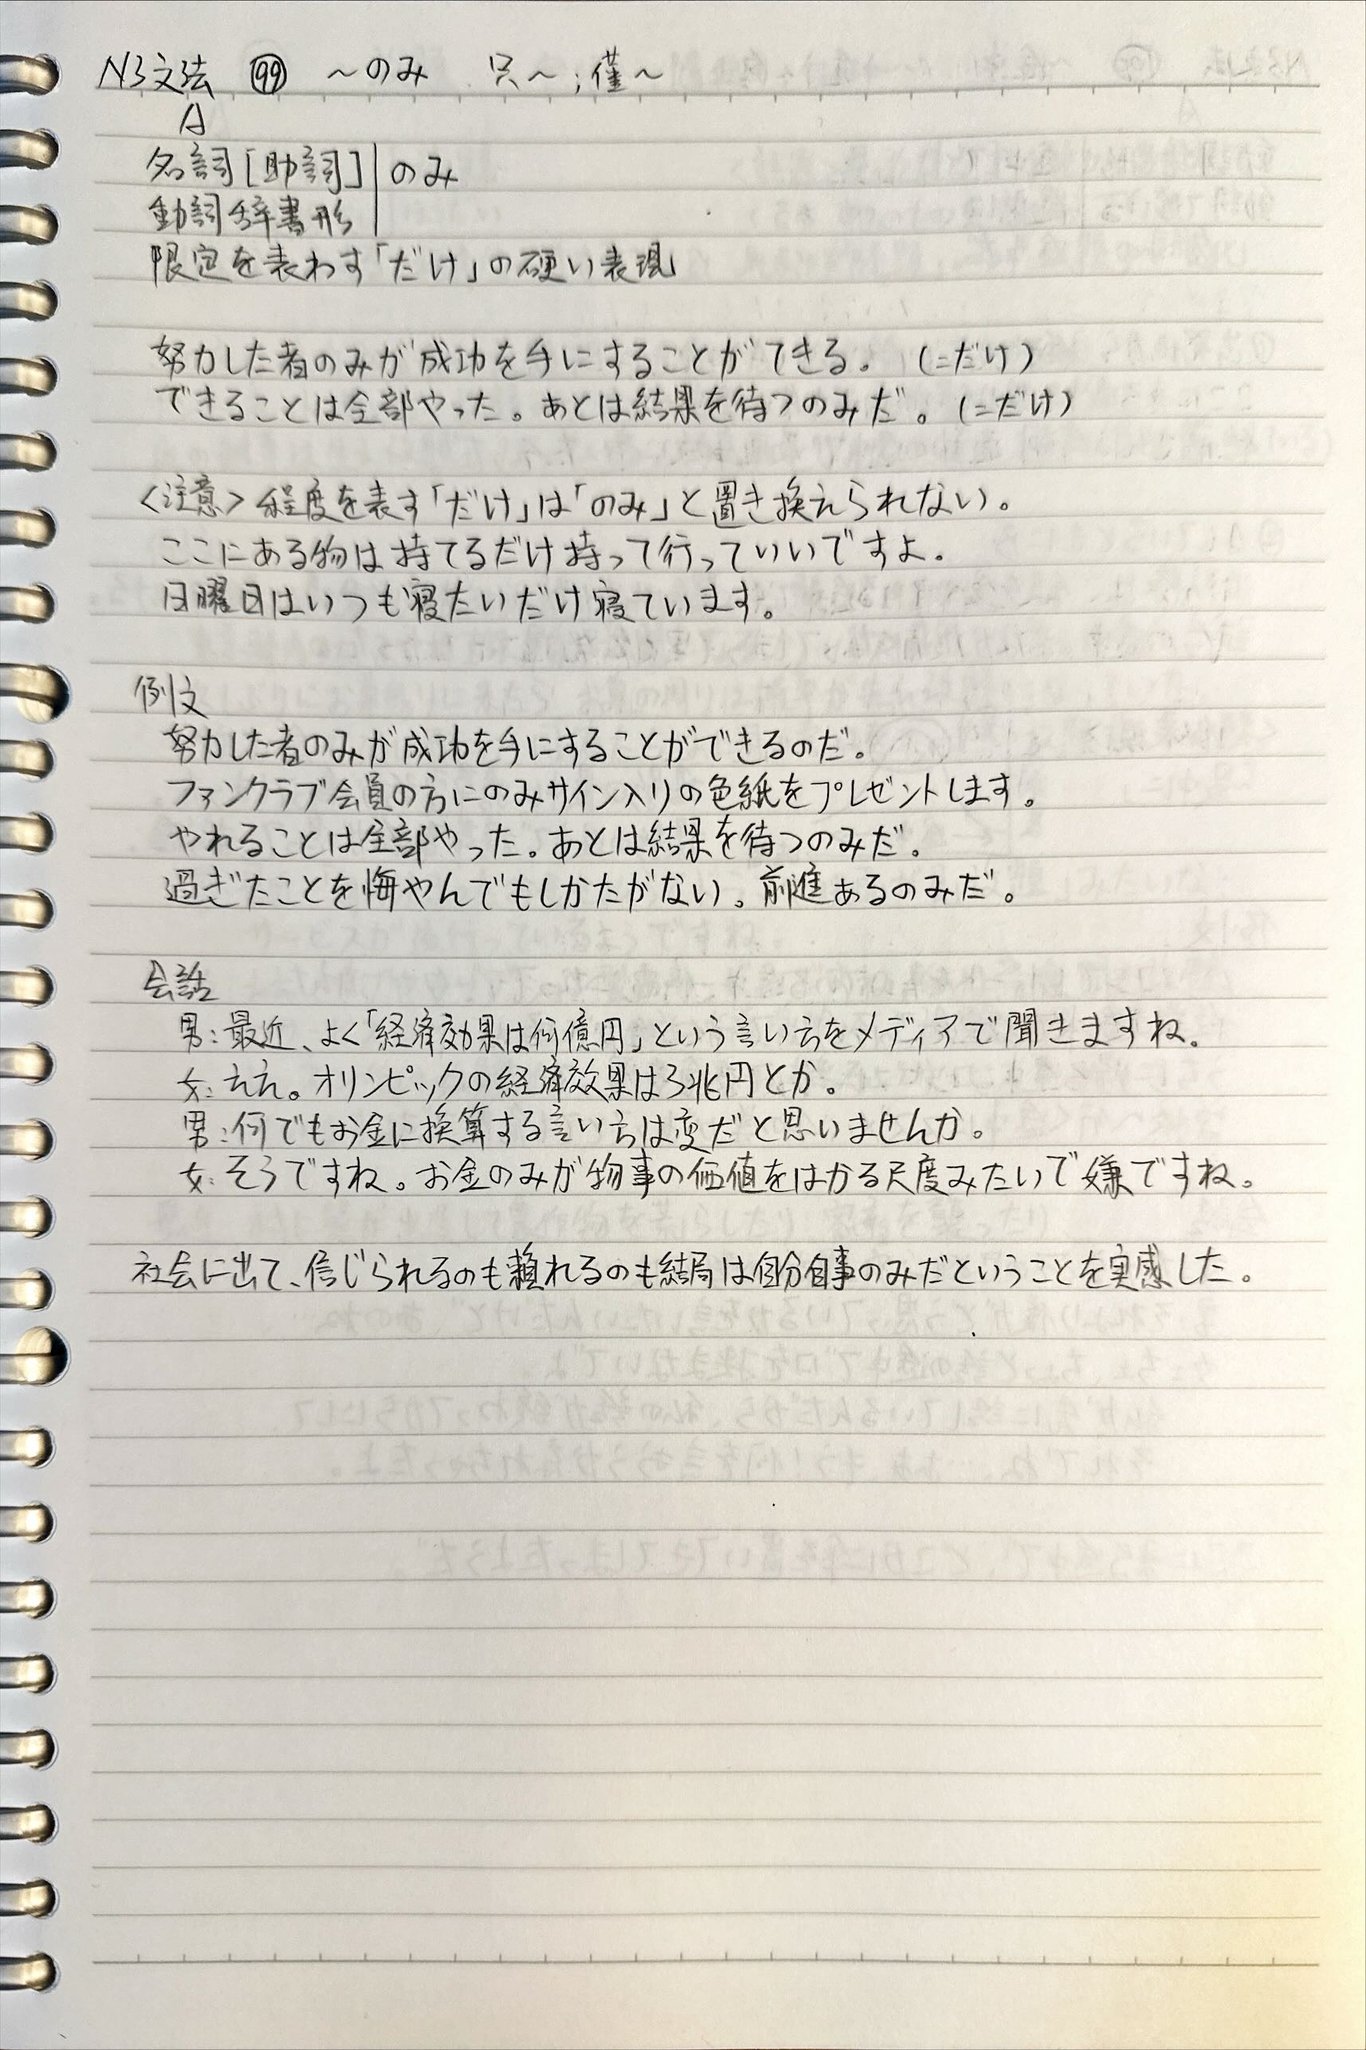 N3文法 99 ～のみ 只～；僅～
A
名詞[助詞] のみ
動詞辞書形
限定を表わす「だけ」の硬い表現
努力した者のみが成功を手にすることができる。（＝だけ）
できることは全部やった。あとは結果を待つのみだ。（＝だけ）
＜注意＞程度を表す「だけ」は「のみ」と置き換えられない。
ここにある物は持てるだけ持って行っていいですよ。
日曜日はいつも寝たいだけ寝ています。
例文
努力した者のみが成功を手にすることができるのだ。
ファンクラブ会員の方にのみサイン入りの色紙をプレゼントします。
やれることは全部やった。あとは結果を待つのみだ。
過ぎたことを悔やんでもしかたがない。前進あるのみだ。
会話
男：最近、よく「経済効果は何億円」という言い方をメディアで聞きますね。
女：ええ。オリンピックの経済效果は3兆円とか。
男：何でもお金に換算する言い方は変だと思いませんか。
女：そうですね。お金のみが物事の価値をはかる尺度みたいで嫌ですね。
社会に出て、信じられるのも頼れるのも結局は自分自事のみだということを実感した。